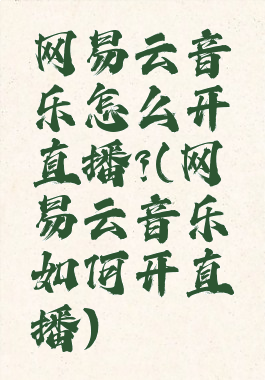 网易云音
乐怎么开
直播?(网
易云音乐
如何开直
播)